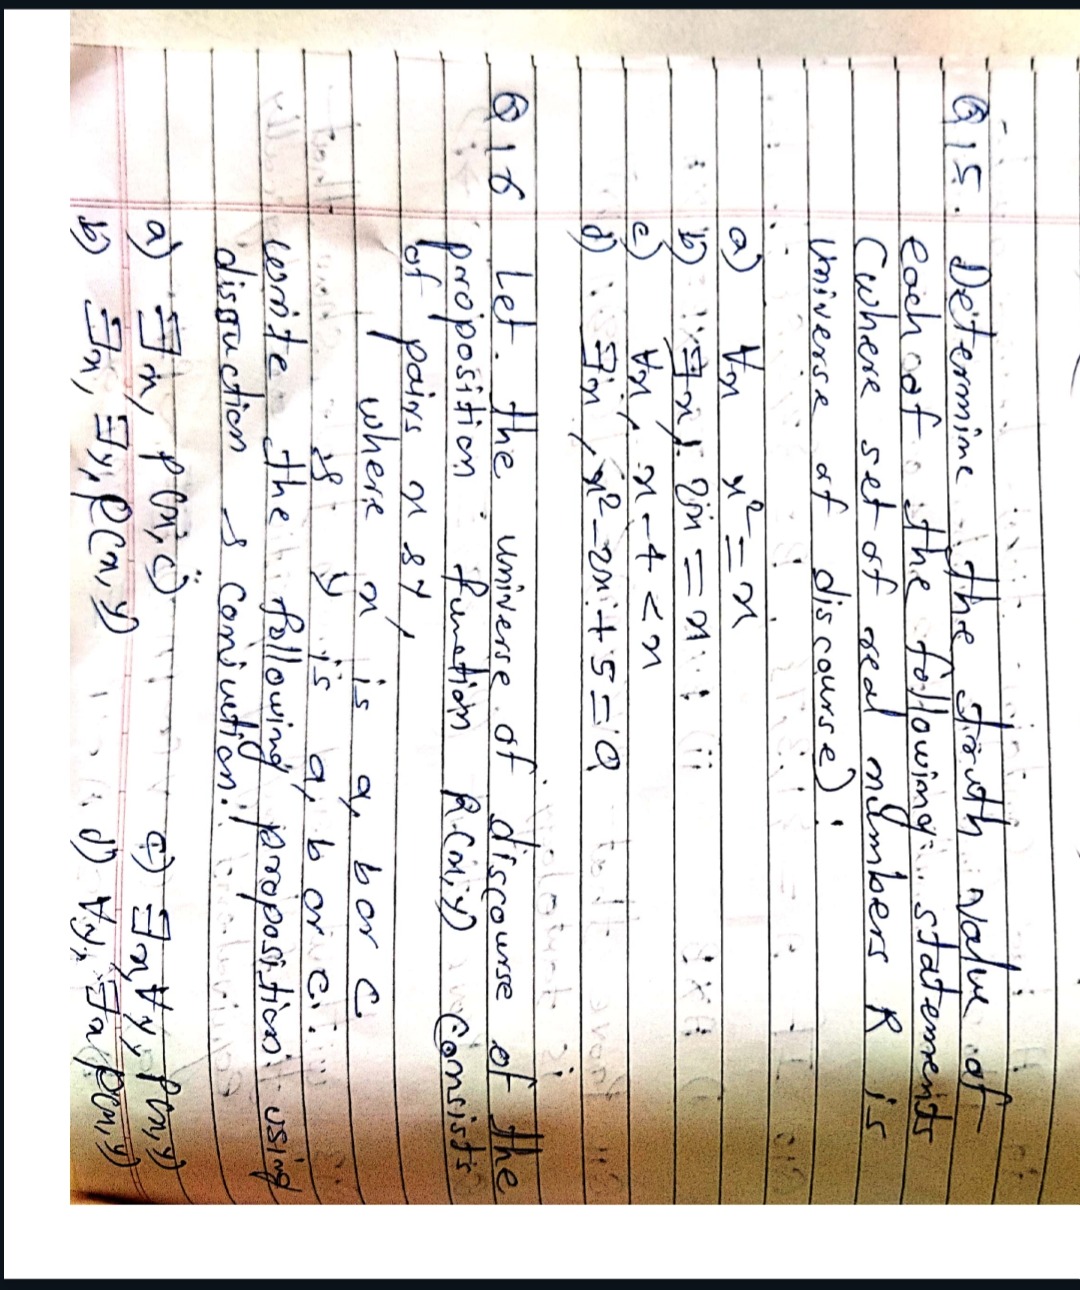 Q 15. Determine the truth value of
each of the following statements
(where set of real numbers R is
universe of discourse):
a) ∀x x² = x
b) ∃x, 2x = x
c) ∀x, x-4 < x
d) ∃x, x² - 2x + 5 = 0
Q 16 Let the universe of discourse of the
proposition function P(x,y) consists
of pairs x & y,
where x is a, b or c
& y is a, b or c.
write the following proposition using
disjuction & conjuction.
a) ∃x, p(x, c) c) ∃x, ∀y p(x,y)
b) ∃x, ∃y, p(x, y) d) ∀y, ∃x p(x,y)